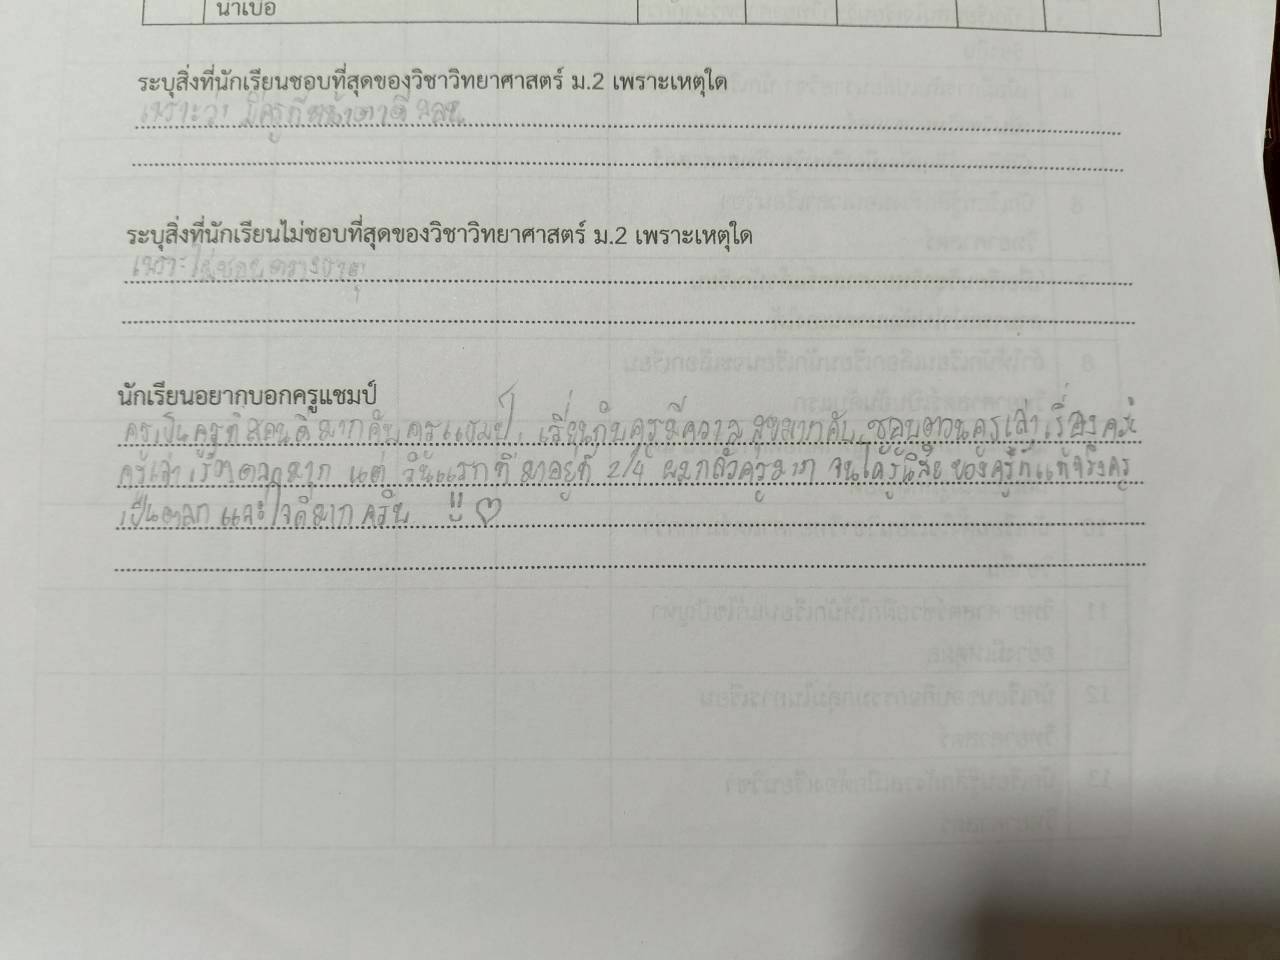 น่าเบื่อ
ระบุสิ่งที่นักเรียนชอบที่สุดของวิชาวิทยาศาสตร์ ม.2 เพราะเหตุใด
เพราะว่า มีครูที่หน้าตาดี สอน
ระบุสิ่งที่นักเรียนไม่ชอบที่สุดของวิชาวิทยาศาสตร์ ม.2 เพราะเหตุใด
เพราะ ไม่ชอบตารางธาตุ
นักเรียนอยากบอกครูแชมป์
ครูเป็นครูที่สอนดีมากคับครูแชมป์. เรียนกับครูมีความสุขมากคับ ชอบตอนครูเล่าเรื่อง
ครูเล่าเรื่องตลกมาก แต่ วันแรกที่มาอยู่ที่ 2/4 ผมกลัวครูมาก จนได้รู้นิสัยของครูที่แท้จริงครู
เป็นตลก และใจดีมาก ครับ !! ♡